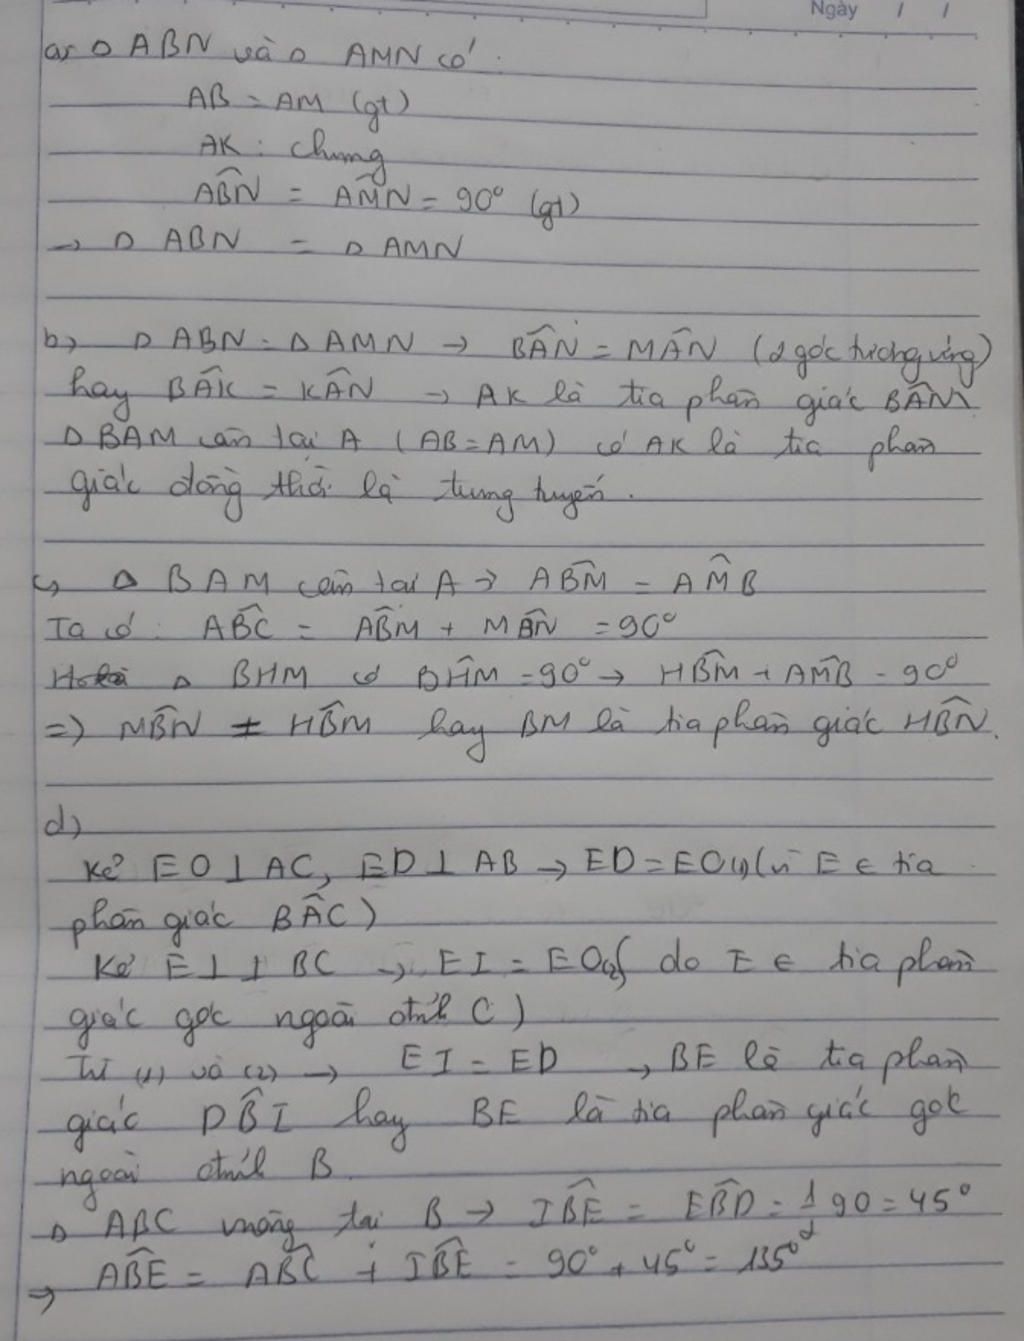 Ngày / /
a, Δ ABN và Δ AMN có:
AB = AM (gt)
AK : chung
ABN̂ = AMN̂ = 90° (gt)
→ Δ ABN = Δ AMN
b, Δ ABN = Δ AMN → BÂN = MÂN (2 góc tương ứng)
hay BÂK = KÂN → AK là tia phân giác BÂM
Δ BAM cân tại A (AB = AM) có AK là tia phân
giác đồng thời là trung tuyến.
c, Δ BAM cân tại A → AB̂M = AM̂B
Ta có: AB̂C = AB̂M + MB̂N = 90°
Δ BHM có BĤM = 90° → HB̂M + AM̂B = 90°
=> MB̂N = HB̂M hay BM là tia phân giác HB̂N.
d)
Kẻ EO ⊥ AC, ED ⊥ AB → ED = EO (1) (vì E ∈ tia
phân giác BÂC)
Kẻ EI ⊥ BC → EI = EO (2) ( do E ∈ tia phân
giác góc ngoài đỉnh C )
Từ (1) và (2) → EI = ED → BE là tia phân
giác DB̂I hay BE là tia phân giác góc
ngoài đỉnh B
Δ ABC vuông tại B → IB̂E = EB̂D = 1/2 90 = 45°
→ AB̂E = AB̂C + IB̂E = 90° + 45° = 135°